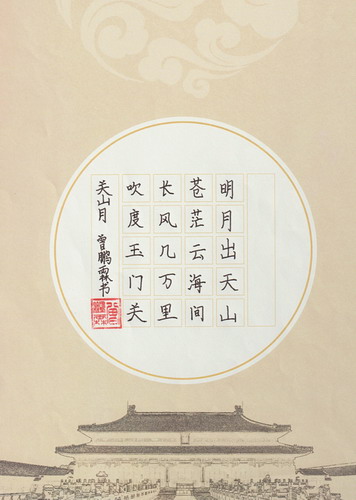 明月出天山
苍茫云海间
长风几万里
吹度玉门关
关山月 曾鹏霖书